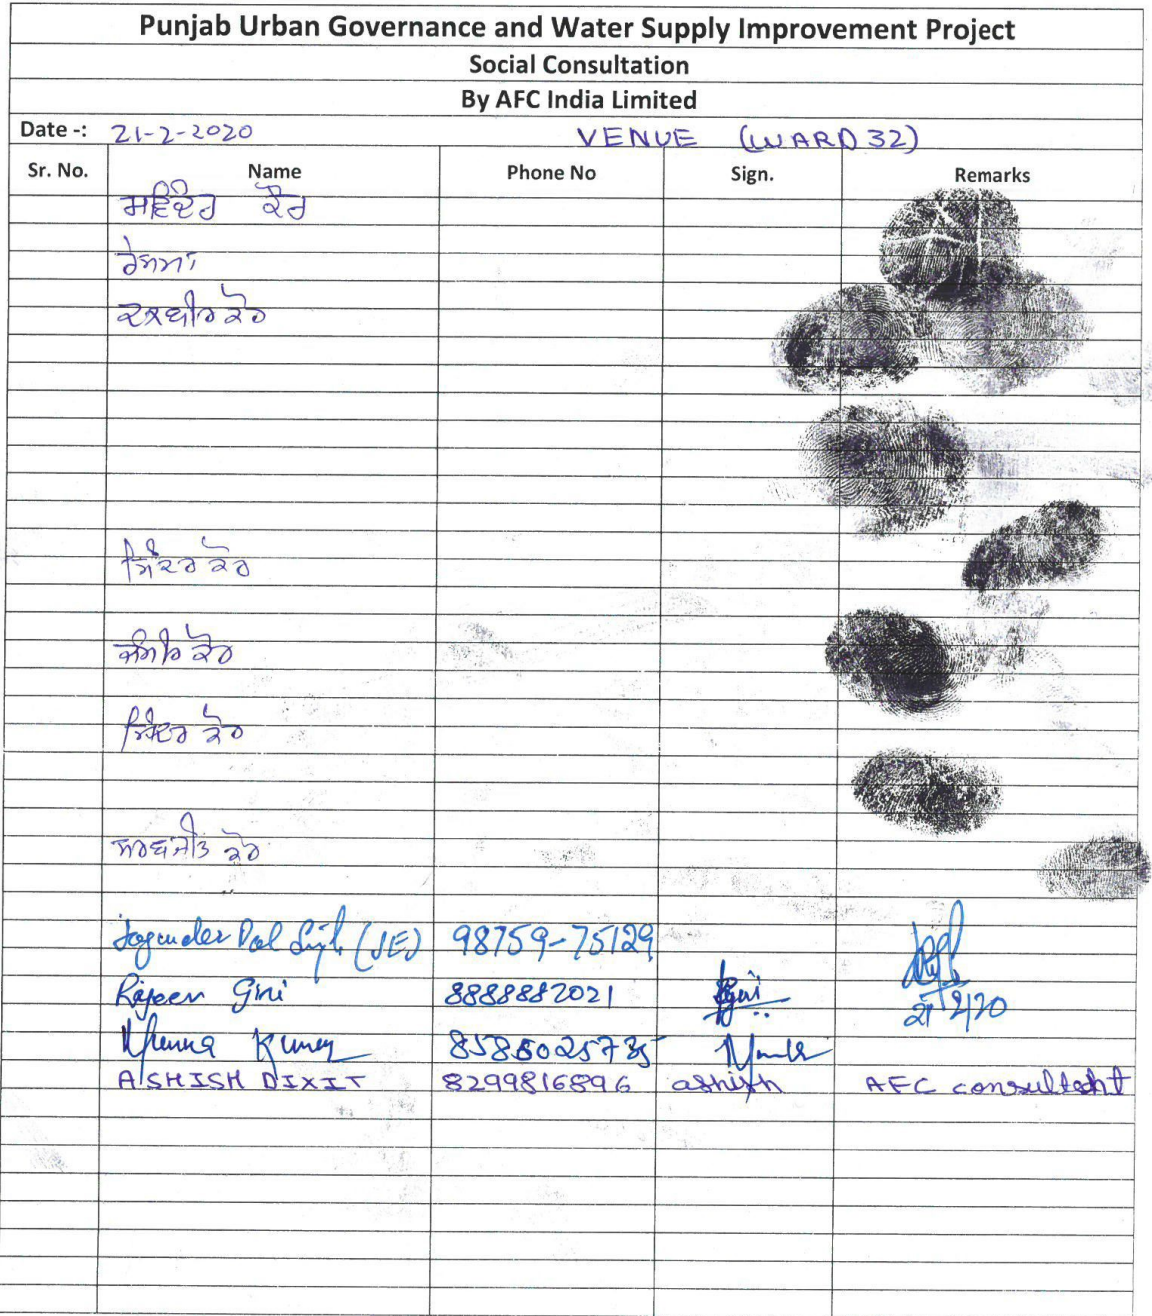 Punjab Urban Governance and Water Supply Improvement Project
Social Consultation
By AFC India Limited
Date -: 21-2-2020 VENUE (WARD 32)
Sr. No. Name Phone No Sign. Remarks
ਕੌਰ
ਰੇਸਮਾ
ਦਲਬੀਰ ਕੌਰ
ਕੌਰ
ਕੌਰ
ਕੌਰ
ਸਰਬਜੀਤ ਕੌਰ
Pal Singh (JE) 98759-75129
Giri 8888882021
21/2/20
Kumar
ASHISH DIXIT 8299816896 ashish AFC consultant